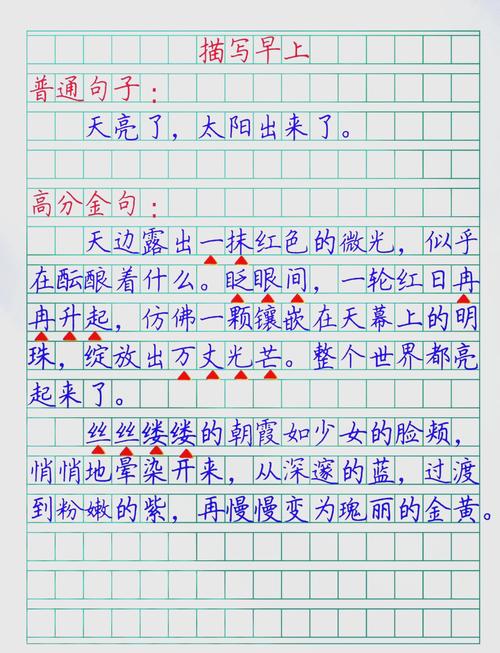 描写早上
普通句子：
天亮了，太阳出来了。
高分金句：
天边露出一抹红色的微光，似乎
在酝酿着什么。眨眼间，一轮红日冉
冉升起，仿佛一颗镶嵌在天幕上的明
珠，绽放出万丈光芒。整个世界都亮
起来了。
丝丝缕缕的朝霞如少女的脸颊，
悄悄地晕染开来，从深邃的蓝，过渡
到粉嫩的紫，再慢慢变为瑰丽的金黄。